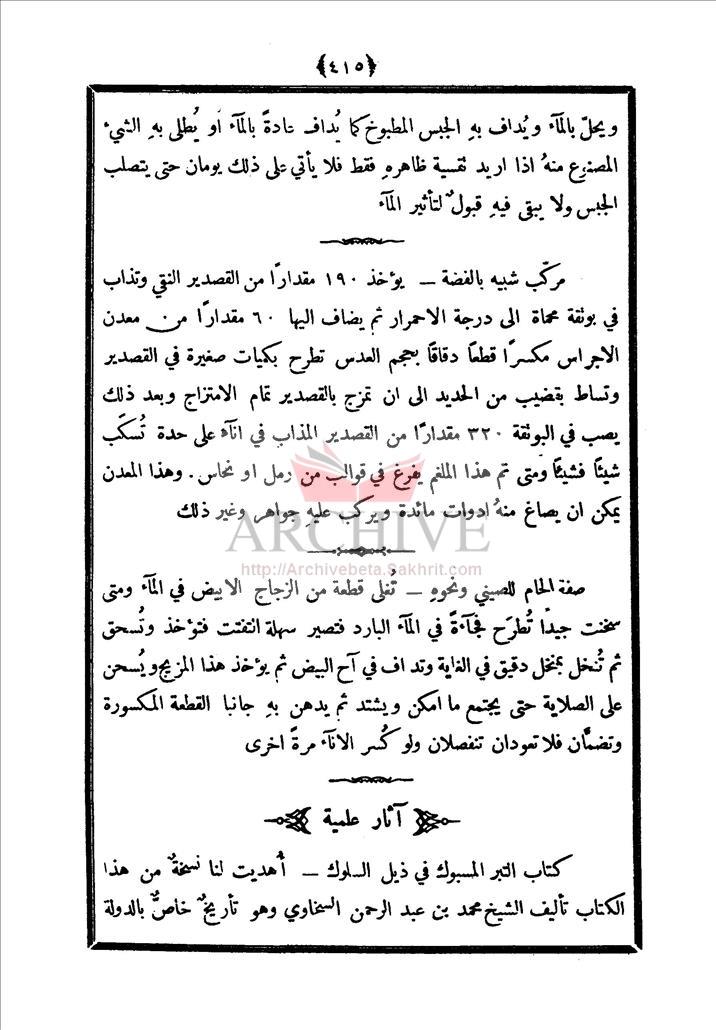 ﴿٤١٥﴾
ويحلّ بالمآء ويُداف بهِ الجبس المطبوخ كما يُداف عادةً بالمآء او يُطلى بهِ الشيء
المصنوع منهُ اذا اريد تقسية ظاهرهِ فقط فلا يأتي على ذلك يومان حتى يتصلب
الجبس ولا يبقى فيهِ قبولٌ لتأثير المآء
مركّب شبيه بالفضة – يؤخذ ١٩٠ مقدارًا من القصدير النقي وتذاب
في بوتقة محماة الى درجة الاحمرار ثم يضاف اليها ٦٠ مقدارًا من معدن
الاجراس مكسرًا قطعًا دقاقًا بحجم العدس تطرح بكميات صغيرة في القصدير
وتساط بقضيب من الحديد الى ان تمزج بالقصدير تمام الامتزاج وبعد ذلك
يصب في البوتقة ٣٢٠ مقدارًا من القصدير المذاب في انآء على حدة تُسكَب
شيئًا فشيئًا ومتى تم هذا الملغم يفرغ في قوالب من رمل او نحاس . وهذا المعدن
يمكن ان يصاغ منهُ ادوات مائدة ويركب عليهِ جواهر وغير ذلك
ARCHIVE
http://Archivebeta.Sakhrit.com
صفة الحام للصيني ونحوهِ – تُغلى قطعة من الزجاج الابيض في المآء ومتى
سخنت جيدًا تُطرَح فجآءةً في المآء البارد فتصير سهلة انتفتت فتؤخذ وتُسحق
ثم تُنخل بمنخل دقيق في الغاية وتداف في آح البيض ثم يؤخذ هذا المزيج ويُسحن
على الصلاية حتى يجتمع ما امكن ويشتد ثم يدهن بهِ جانبا القطعة المكسورة
وتضمَّان فلا تعودان تنفصلان ولو كُسر الانآء مرةً اخرى
آثار علمية
كتاب التبر المسبوك في ذيل السلوك – أُهديت لنا نسخةٌ من هذا
الكتاب تأليف الشيخ محمد بن عبد الرحمن السخاوي وهو تأريخٌ خاصٌّ بالدولة